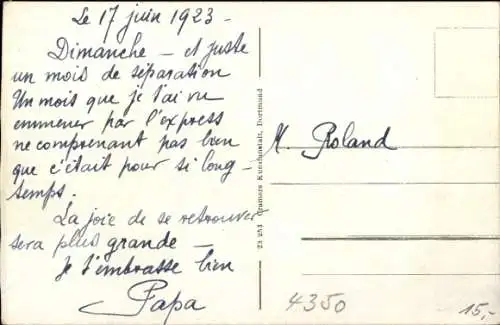 Le 17 juin 1923 -
Dimanche - et juste
un mois de séparation
Un mois que je t'ai vu
emmener par l'express
ne comprenant pas bien
que c'était pour si long-
temps.
La joie de se retrouver
sera plus grande -
Je t'embrasse bien
Papa
23 254 Cramers Kunstanstalt, Dortmund
M. Roland
4350
15,-